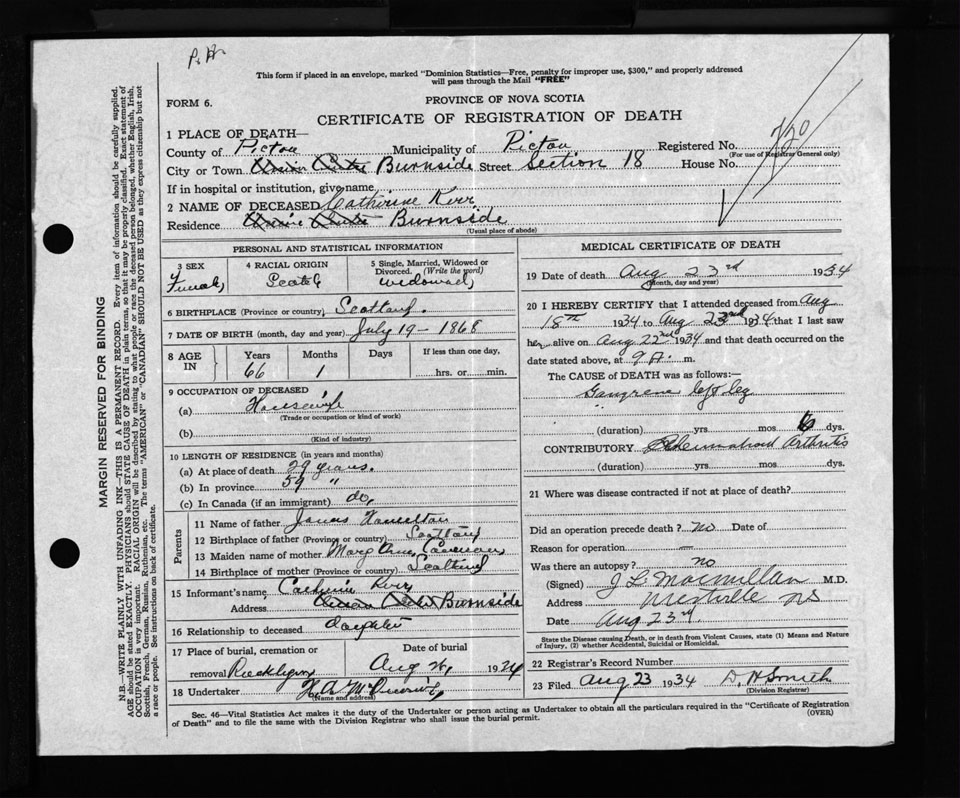 P. H
This form if placed in an envelope, marked "Dominion Statistics—Free, penalty for improper use, $300," and properly addressed
will pass through the Mail "FREE"
FORM 6.
PROVINCE OF NOVA SCOTIA
CERTIFICATE OF REGISTRATION OF DEATH
1 PLACE OF DEATH—
County of Pictou Municipality of Pictou Registered No.
(For use of Registrar General only)
City or Town Burnside Street Section 18 House No.
If in hospital or institution, give name
2 NAME OF DECEASED Catherine Keir
Residence Burnside
(Usual place of abode)
PERSONAL AND STATISTICAL INFORMATION
3 SEX
Female
4 RACIAL ORIGIN
Scotch
5 Single, Married, Widowed or
Divorced. (Write the word)
widowed
6 BIRTHPLACE (Province or country) Scotland
7 DATE OF BIRTH (month, day and year) July 19 - 1868
8 AGE IN
Years Months Days If less than one day,
66 1 hrs. or min.
9 OCCUPATION OF DECEASED
(a) Housewife
(Trade or occupation or kind of work)
(b)
(Kind of industry)
10 LENGTH OF RESIDENCE (in years and months)
(a) At place of death 29 years.
(b) In province 59 "
(c) In Canada (if an immigrant) do.
Parents
11 Name of father James Hamilton
12 Birthplace of father (Province or country) Scotland
13 Maiden name of mother Marg Ann Cameron
14 Birthplace of mother (Province or country) Scotland
15 Informant's name Catherine Keir
Address Burnside
16 Relationship to deceased daughter
17 Place of burial, cremation or
removal
Date of burial
Aug 26, 1934
18 Undertaker
(Name and address)
MEDICAL CERTIFICATE OF DEATH
19 Date of death Aug 23rd 1934
(Month, day and year)
20 I HEREBY CERTIFY that I attended deceased from Aug
18th 1934 to Aug 23rd 1934 that I last saw
her alive on Aug 22nd 1934 and that death occurred on the
date stated above, at 9 A. m.
The CAUSE of DEATH was as follows:—
Gangrene left leg
(duration) yrs. mos. 6 dys.
CONTRIBUTORY Rheumatoid Arthritis
(duration) yrs. mos. dys.
21 Where was disease contracted if not at place of death?
Did an operation precede death? no Date of
Reason for operation —
Was there an autopsy? no
(Signed) J L Macmillan M.D.
Address Westville NS
Date Aug 23rd.
State the Disease causing Death, or in death from Violent Causes, state (1) Means and Nature
of Injury, (2) whether Accidental, Suicidal or Homicidal.
22 Registrar's Record Number
23 Filed Aug 23 1934 D. H Smith
(Division Registrar)
Sec. 46—Vital Statistics Act makes it duty of the Undertaker or person acting as Undertaker to obtain all the particulars required in the "Certificate of Registration
of Death" and to file the same with the Division Registrar who shall issue the burial permit.
(OVER)
MARGIN RESERVED FOR BINDING
N.B.—WRITE PLAINLY WITH UNFADING INK—THIS IS A PERMANENT RECORD. Every item of information should be carefully supplied.
AGE should be stated EXACTLY. PHYSICIANS should STATE CAUSE OF DEATH in plain terms, so that it may be properly classified. Exact statement of
OCCUPATION is very important. RACIAL ORIGIN will be described by stating to what people or race the deceased person belonged, whether English, Irish,
Scottish, French, German, Russian, Ruthenian, etc. The terms "AMERICAN" or "CANADIAN" SHOULD NOT BE USED as they express citizenship but not
a race or people. See instructions on back of certificate.